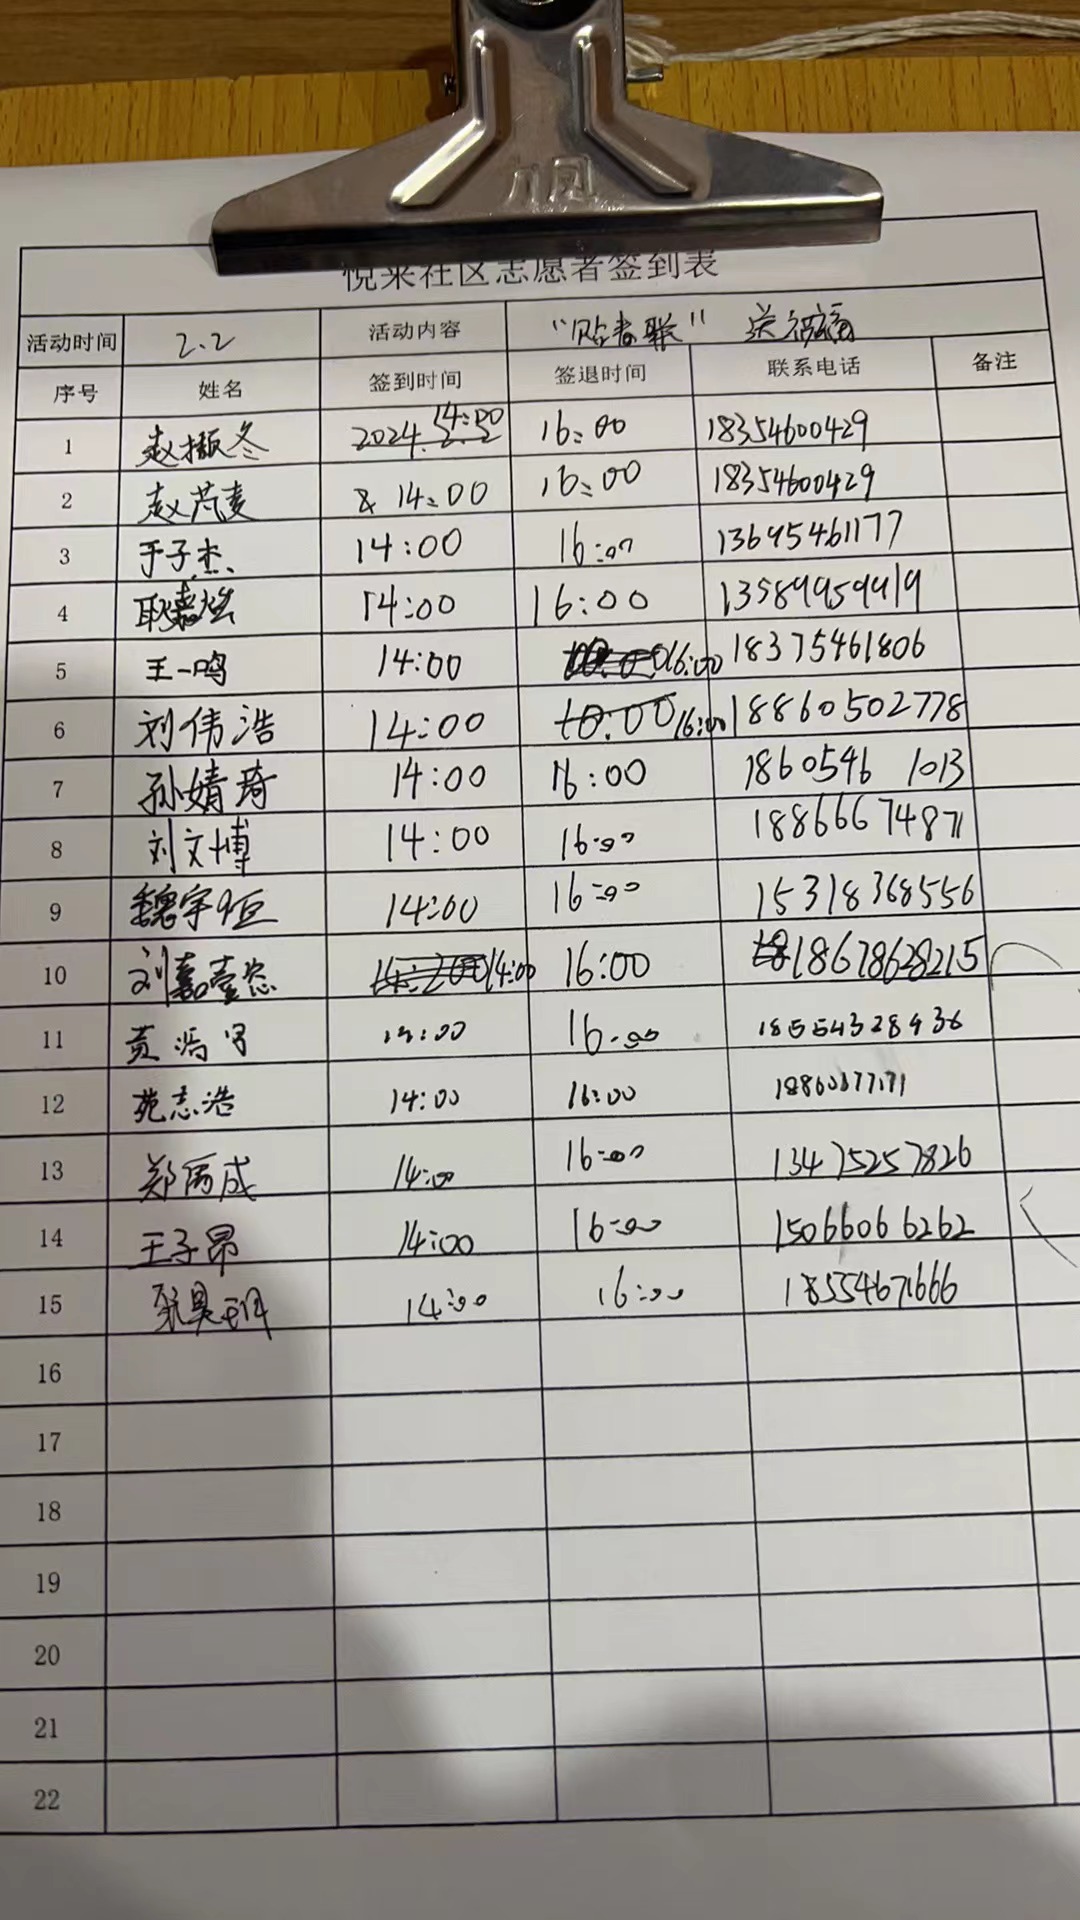 悦来社区志愿者签到表
活动时间 2.2 活动内容 “贴春联” 送祝福
序号 姓名 签到时间 签退时间 联系电话 备注
1 赵振冬 14:00 16:00 18354600429
2 赵芃麦 14:00 16:00 18354600429
3 于子杰 14:00 16:00 13695461177
4 耿嘉 14:00 16:00 13589959919
5 王一鸣 14:00 16:00 18375461806
6 刘伟浩 14:00 16:00 18860502778
7 孙婧琦 14:00 16:00 1860546 1013
8 刘文博 14:00 16:00 18866674871
9 魏宇恒 14:00 16:00 15318368556
10 刘嘉壹 14:00 16:00 18678628215
11 黄 14:00 16:00 18554328936
12 苑志浩 14:00 16:00
13 郑丙成 14:00 16:00 13475257826
14 王子昂 14:00 16:00 15066066262
15 昊 14:00 16:00 18554671666
16
17
18
19
20
21
22